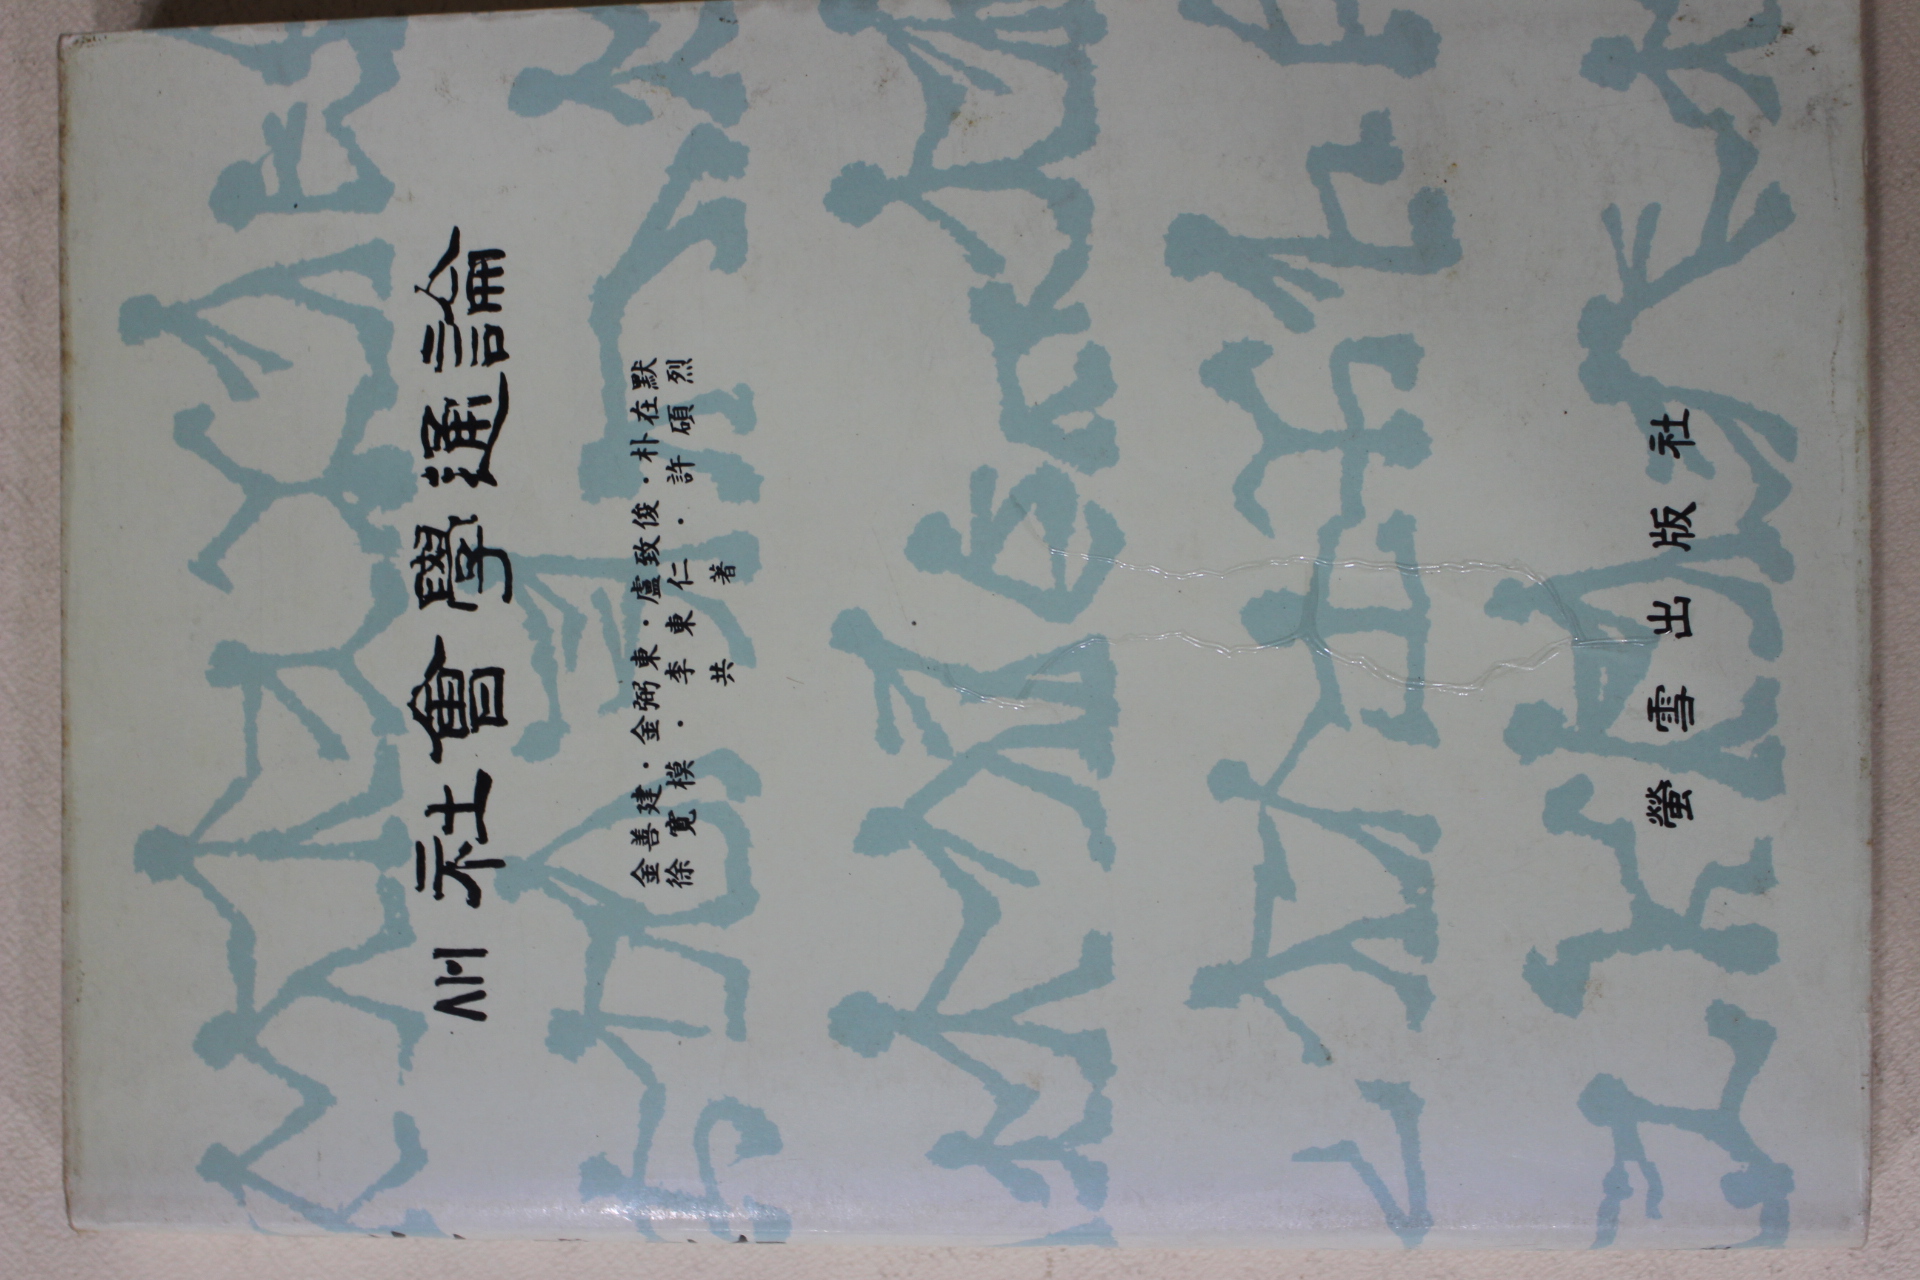 새 社會學通論
金善建·金弼東·盧致俊·朴在默
徐寬模·李東仁·許碩烈
共著
螢雪出版社